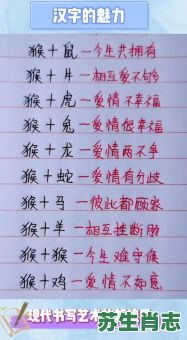 汉字的魅力
猴+鼠一今生共拥有
猴+牛一相互爱不够
猴+虎一爱情不幸福
猴+兔一爱情很幸福
猴+龙一爱情两不争
猴+蛇一爱情有分歧
猴+马一彼此都顾家
猴+羊一相互挂断肠
猴+猴一今生难守肖
猴+鸡一爱情不如意
现代书写艺术
苏生肖志